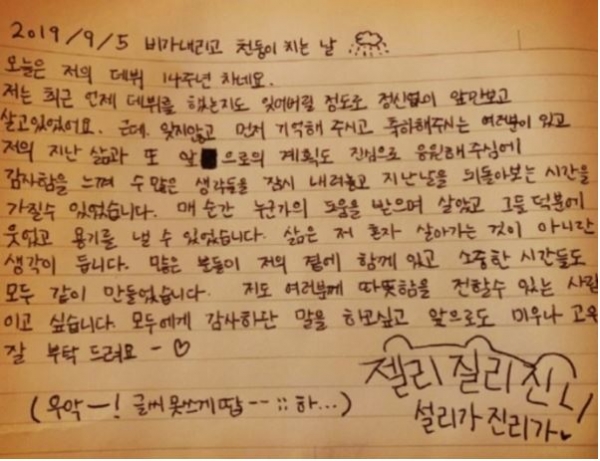 2019/9/5 비가내리고 천둥이 치는 날
오늘은 저의 데뷔 14주년 차네요.
저는 최근 언제 데뷔를 했는지도 잊어버릴 정도로 정신없이 앞만보고
살고있었어요. 근데. 잊지않고 먼저 기억해 주시고 축하해주시는 여러분이 있고
저의 지난 삶과 또 앞으로의 계획도 진심으로 응원해 주심에
감사함을 느껴 수 많은 생각들을 잠시 내려놓고 지난날을 뒤돌아보는 시간을
가질수 있었습니다. 매 순간 누군가의 도움을 받으며 살았고 그들 덕분에
웃었고 용기를 낼 수 있었습니다. 삶은 저 혼자 살아가는 것이 아니란
생각이 듭니다. 많은 분들이 저의 곁에 함께 있고 소중한 시간들도
모두 같이 만들었습니다. 저도 여러분께 따뜻함을 전할수 있는 사람
이고 싶습니다. 모두에게 감사하단 말을 하고싶고 앞으로도 미우나 고우
잘 부탁 드려요 ~ ♡
젤리 질리 진.
(우악ー! 글씨 못쓰게땁 -- ;; 하...)
설리가 진리가